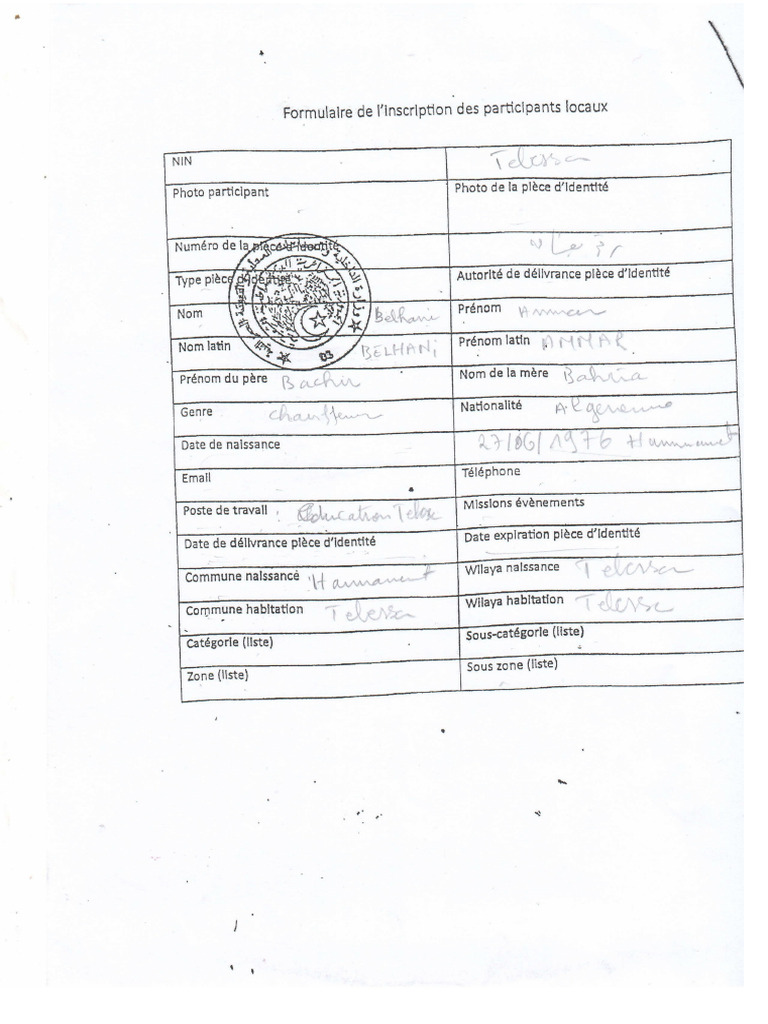 Formulaire de l'inscription des participants locaux
NIN Tebessa
Photo participant Photo de la pièce d'identité
Numéro de la pièce d'identité
Type pièce d'identité Autorité de délivrance pièce d'identité
Nom Belhani Prénom Ammar
Nom latin BELHANi Prénom latin AMMAR
Prénom du père Bachir Nom de la mère Bahria
Genre chauffeur Nationalité Algerienne
Date de naissance 27/06/1976 Hammamet
Email Téléphone
Poste de travail : Education Tebessa Missions évènements
Date de délivrance pièce d'identité Date expiration pièce d'identité
Commune naissance Hammamet Wilaya naissance Tebessa
Commune habitation Tebessa Wilaya habitation Tebessa
Catégorie (liste) Sous-catégorie (liste)
Zone (liste) Sous zone (liste)